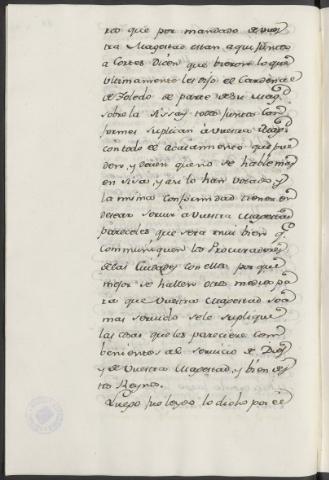 rco que por mandado de vues
tra Magestad estan aqui juntos
a Cortes Dicen que vieron lo que
Ultimamente les dijo el Cardenal
de Toledo de parte de Su Magd
sobre la Sissa y todos juntos con
formes suplican á vuestra Magd
con todo el acatamiento que pue
den, y deven que no se hable mas
en sisa, y asi lo han votado, y
la misma conformidad tienen en
desear servir a Vuestra Magestad
pareceles que sera muy bien qe
Communiquen los Procuradores
de las Ciudades con ellos, por que
mejor se hallen otros medios pa
ra que Vuestra Magestad sea
mas servido se le suplique
las cosas que les pareciere com
benientes al servicio de Dios
y de Vuestra Magestad, y bien des
tos Reynos.
Luego fue leydo lo dicho por el